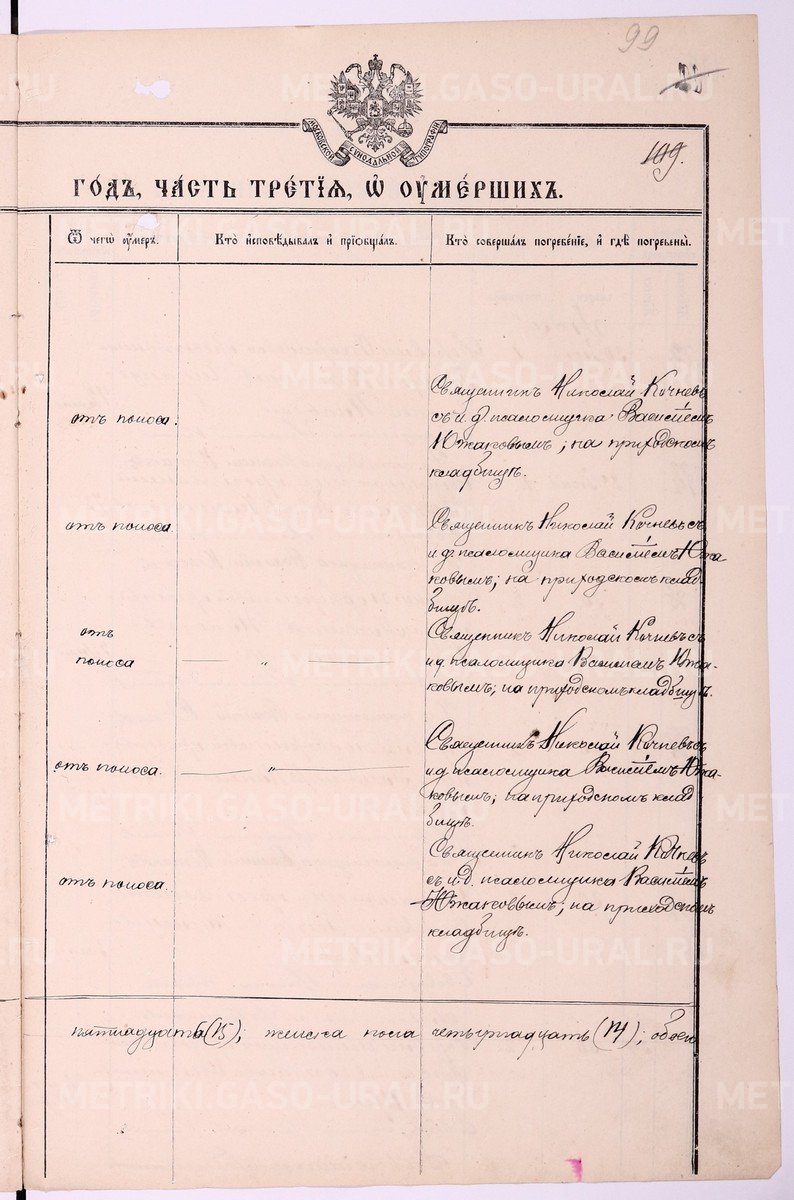 99
109.
МОСКОВСКОЙ СѴНОДАЛЬНОЙ ТИПОГРАФІИ
ГО́ДЪ, ЧА́СТЬ ТРЕ́ТІѦ, Ѡ ОУМЕ́РШИХЪ.
Ѿ чегѡ̀ оу́меръ.
Кто̀ и҆сповѣ́дывалъ и҆ прїѡбща́лъ.
Кто̀ соверша́лъ погребе́нїе, и҆ гдѣ̀ погребены̀.
отъ поноса.
Священникъ Николай Кочневъ
съ и. д. псаломщика Василіемъ
Южаковымъ; на приходскомъ
кладбищѣ.
отъ поноса.
Священникъ Николай Кочневъ съ
и д. псаломщика Василіемъ Южа
ковымъ; на приходскомъ клад
бищѣ.
отъ
поноса — „ —
Священникъ Николай Кочневъ съ
и д. псаломщика Василіемъ Южа-
ковымъ; на приходскомъ кладбищѣ.
отъ поноса. — „ —
Священникъ Николай Кочневъ съ
и д. псаломщика Василіемъ Южа-
ковымъ; на приходскомъ клад
бищѣ.
отъ поноса.
Священникъ Николай Кочневъ
съ и. д. псаломщика Василіемъ
Южаковымъ; на приходскомъ
кладбищѣ.
пятнадцать (15); женска пола четырнадцать (14); обоего
METRIKI.GASO-URAL.RU